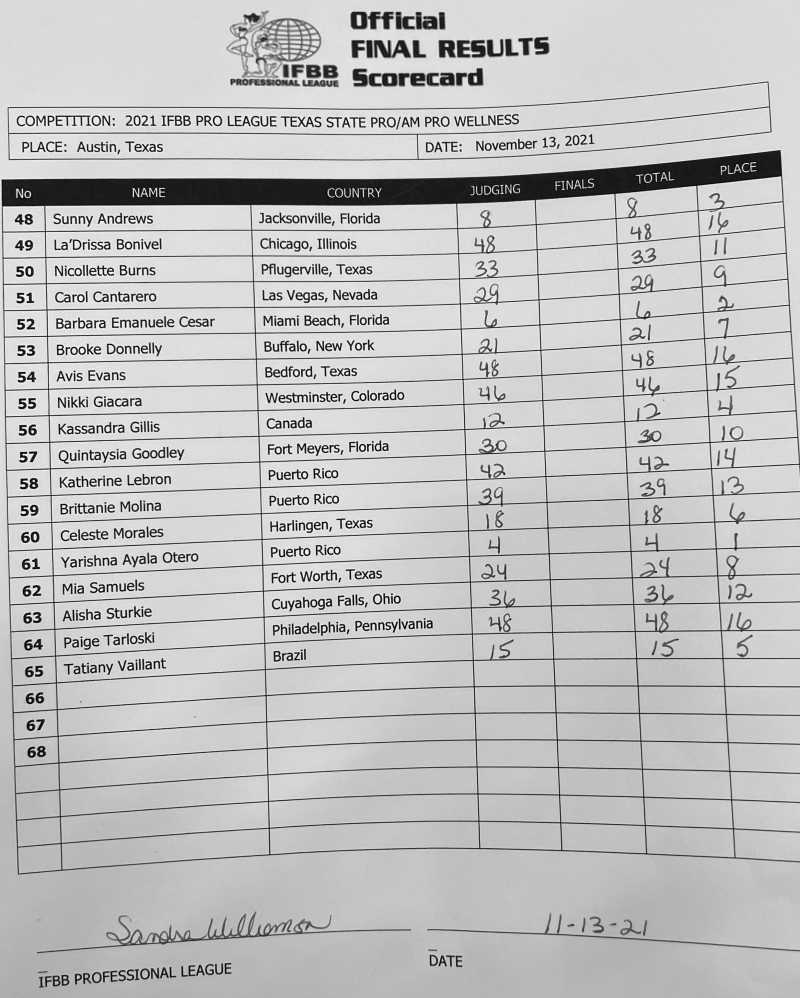 Official
FINAL RESULTS
Scorecard
IFBB
PROFESSIONAL LEAGUE
COMPETITION: 2021 IFBB PRO LEAGUE TEXAS STATE PRO/AM PRO WELLNESS
PLACE: Austin, Texas DATE: November 13, 2021
No NAME COUNTRY JUDGING FINALS TOTAL PLACE
48 Sunny Andrews Jacksonville, Florida 8 8 3
49 La'Drissa Bonivel Chicago, Illinois 48 48 16
50 Nicollette Burns Pflugerville, Texas 33 33 11
51 Carol Cantarero Las Vegas, Nevada 29 29 9
52 Barbara Emanuele Cesar Miami Beach, Florida 6 6 2
53 Brooke Donnelly Buffalo, New York 21 21 7
54 Avis Evans Bedford, Texas 48 48 16
55 Nikki Giacara Westminster, Colorado 46 46 15
56 Kassandra Gillis Canada 12 12 4
57 Quintaysia Goodley Fort Meyers, Florida 30 30 10
58 Katherine Lebron Puerto Rico 42 42 14
59 Brittanie Molina Puerto Rico 39 39 13
60 Celeste Morales Harlingen, Texas 18 18 6
61 Yarishna Ayala Otero Puerto Rico 4 4 1
62 Mia Samuels Fort Worth, Texas 24 24 8
63 Alisha Sturkie Cuyahoga Falls, Ohio 36 36 12
64 Paige Tarloski Philadelphia, Pennsylvania 48 48 16
65 Tatiany Vaillant Brazil 15 15 5
66
67
68
Sandra Williamson 11-13-21
IFBB PROFESSIONAL LEAGUE DATE